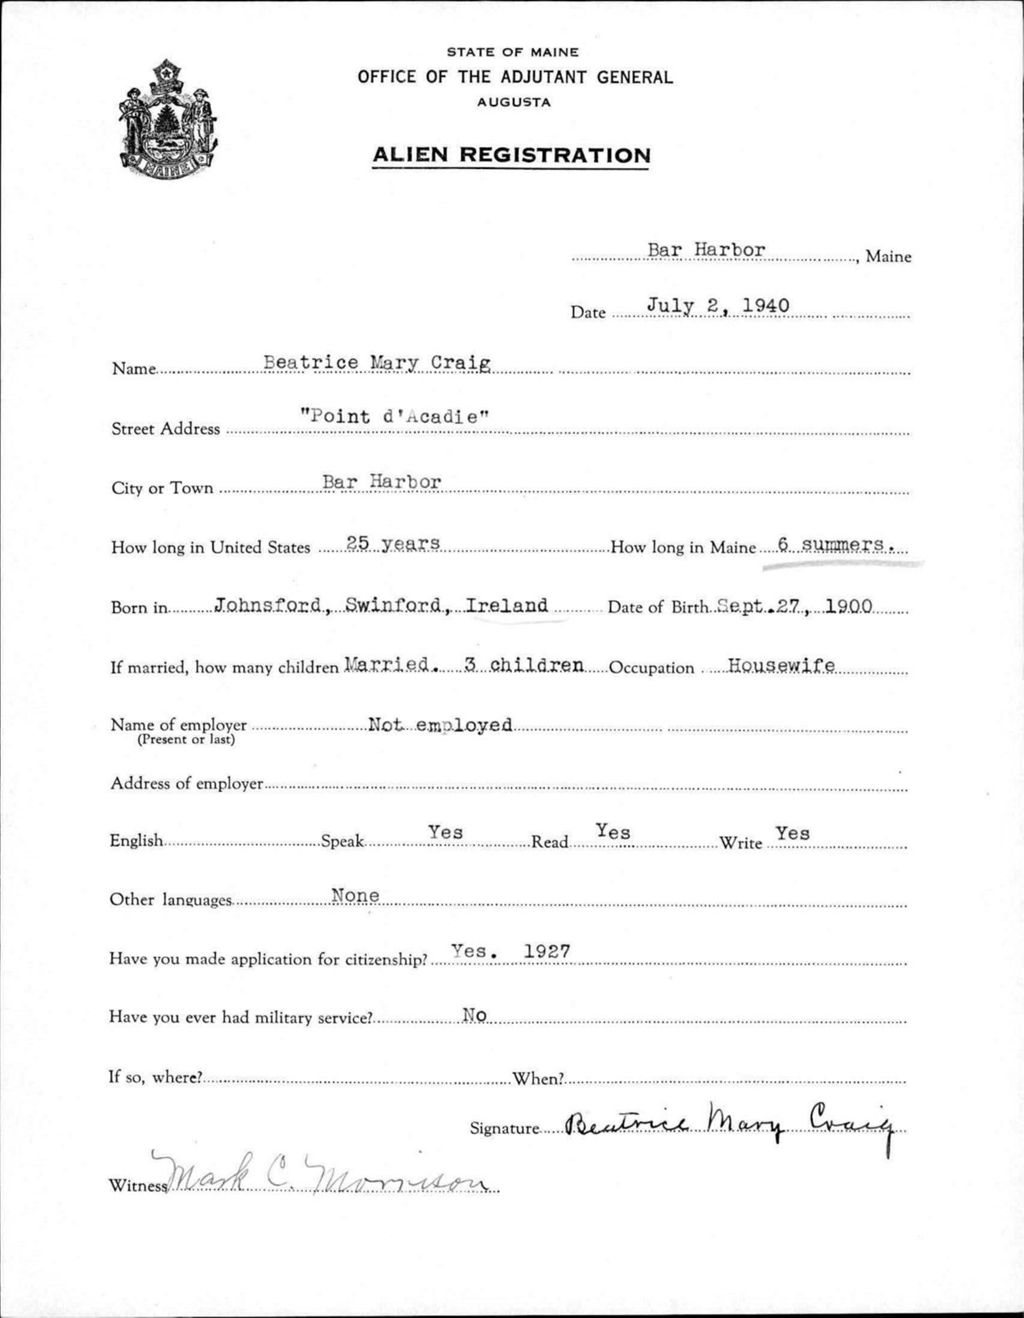 STATE OF MAINE
OFFICE OF THE ADJUTANT GENERAL
AUGUSTA
ALIEN REGISTRATION
MAINE
Bar Harbor, Maine
Date July 2, 1940
Name Beatrice Mary Craig
Street Address "Point d'Acadie"
City or Town Bar Harbor
How long in United States 25 years How long in Maine 6 summers.
Born in Johnsford, Swinford, Ireland Date of Birth Sept. 27, 1900
If married, how many children Married. 3 children Occupation Housewife
Name of employer Not employed
(Present or last)
Address of employer
English Speak Yes Read Yes Write Yes
Other languages None
Have you made application for citizenship? Yes. 1927
Have you ever had military service? No
If so, where? When?
Signature Beatrice Mary Craig
Witness Mark C. Morrison